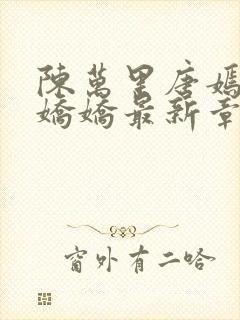 陳萬里唐嫣
嬌嬌最新章
窗外有二哈